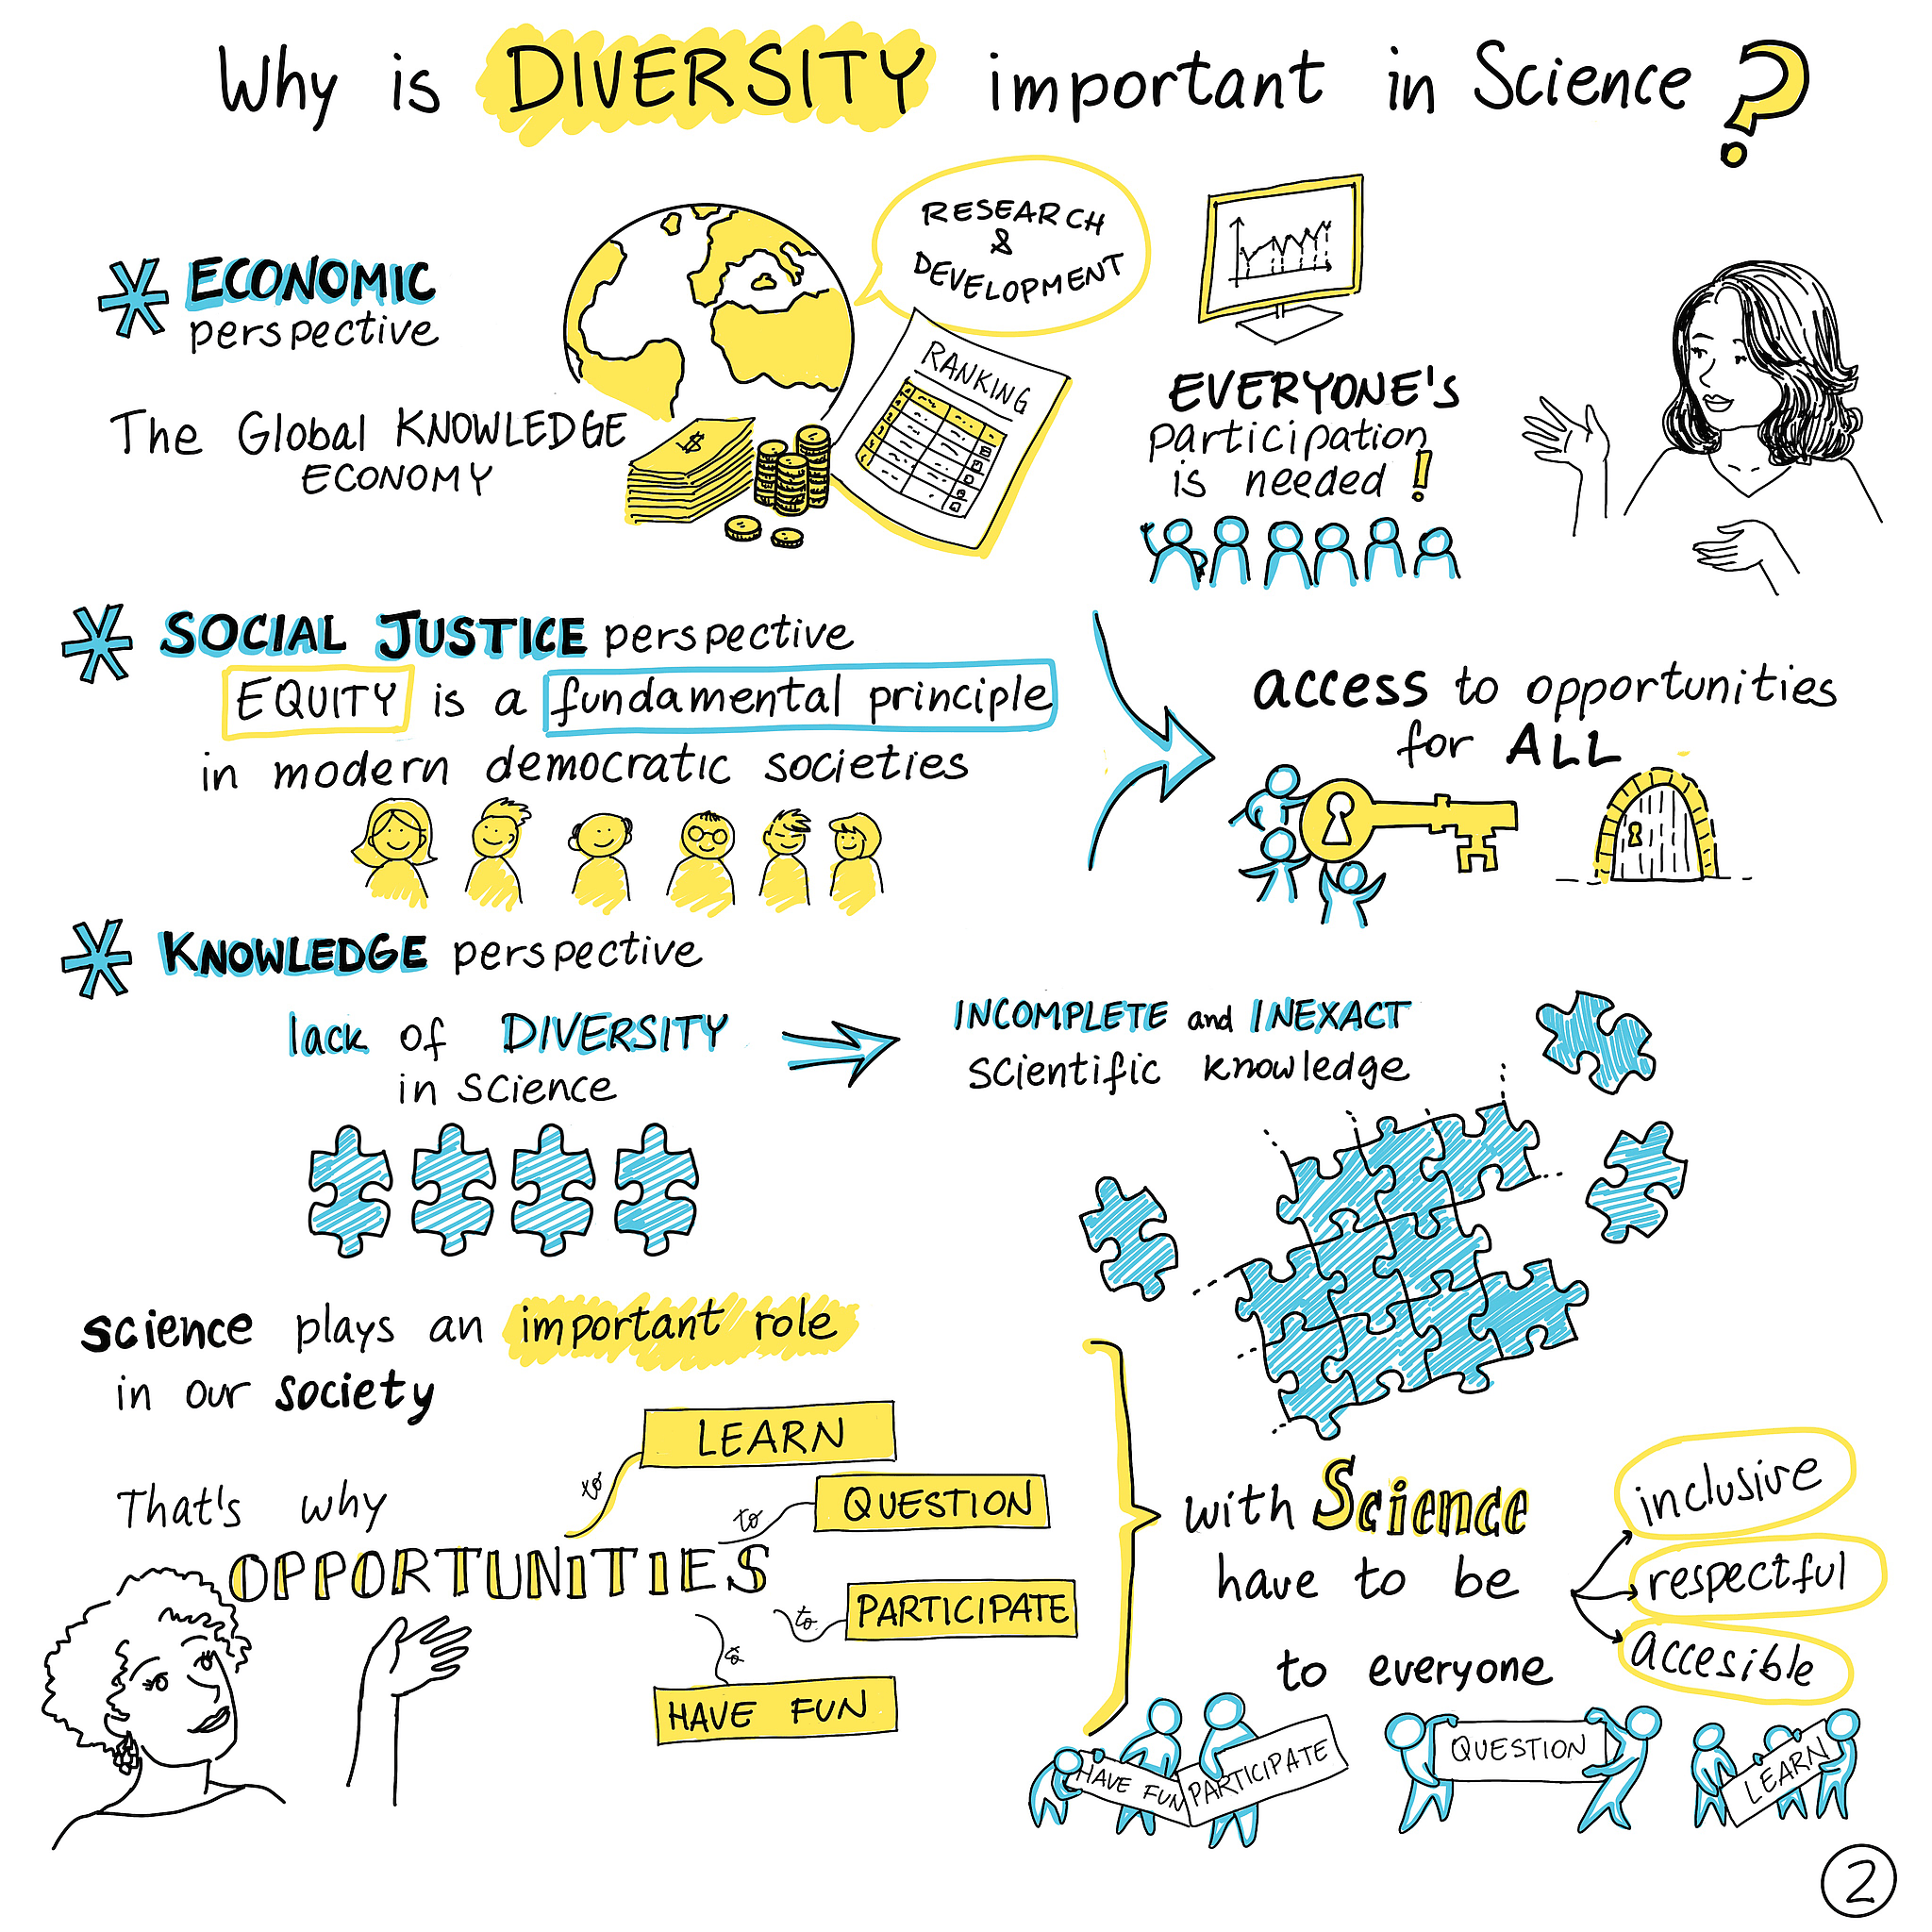 Why is DIVERSITY important in Science ?
* ECONOMIC
perspective
The Global KNOWLEDGE
ECONOMY
$
RESEARCH
&
DEVELOPMENT
RANKING
EVERYONE'S
participation
is needed!
* SOCIAL JUSTICE perspective
EQUITY is a fundamental principle
in modern democratic societies
access to opportunities
for ALL
* KNOWLEDGE perspective
lack of DIVERSITY
in science
INCOMPLETE and INEXACT
scientific knowledge
science plays an important role
in our society
That's why
OPPORTUNITIES
to LEARN
to QUESTION
to PARTICIPATE
to HAVE FUN
with Science
have to be
inclusive
respectful
accesible
to everyone
HAVE FUN
PARTICIPATE
QUESTION
LEARN
2